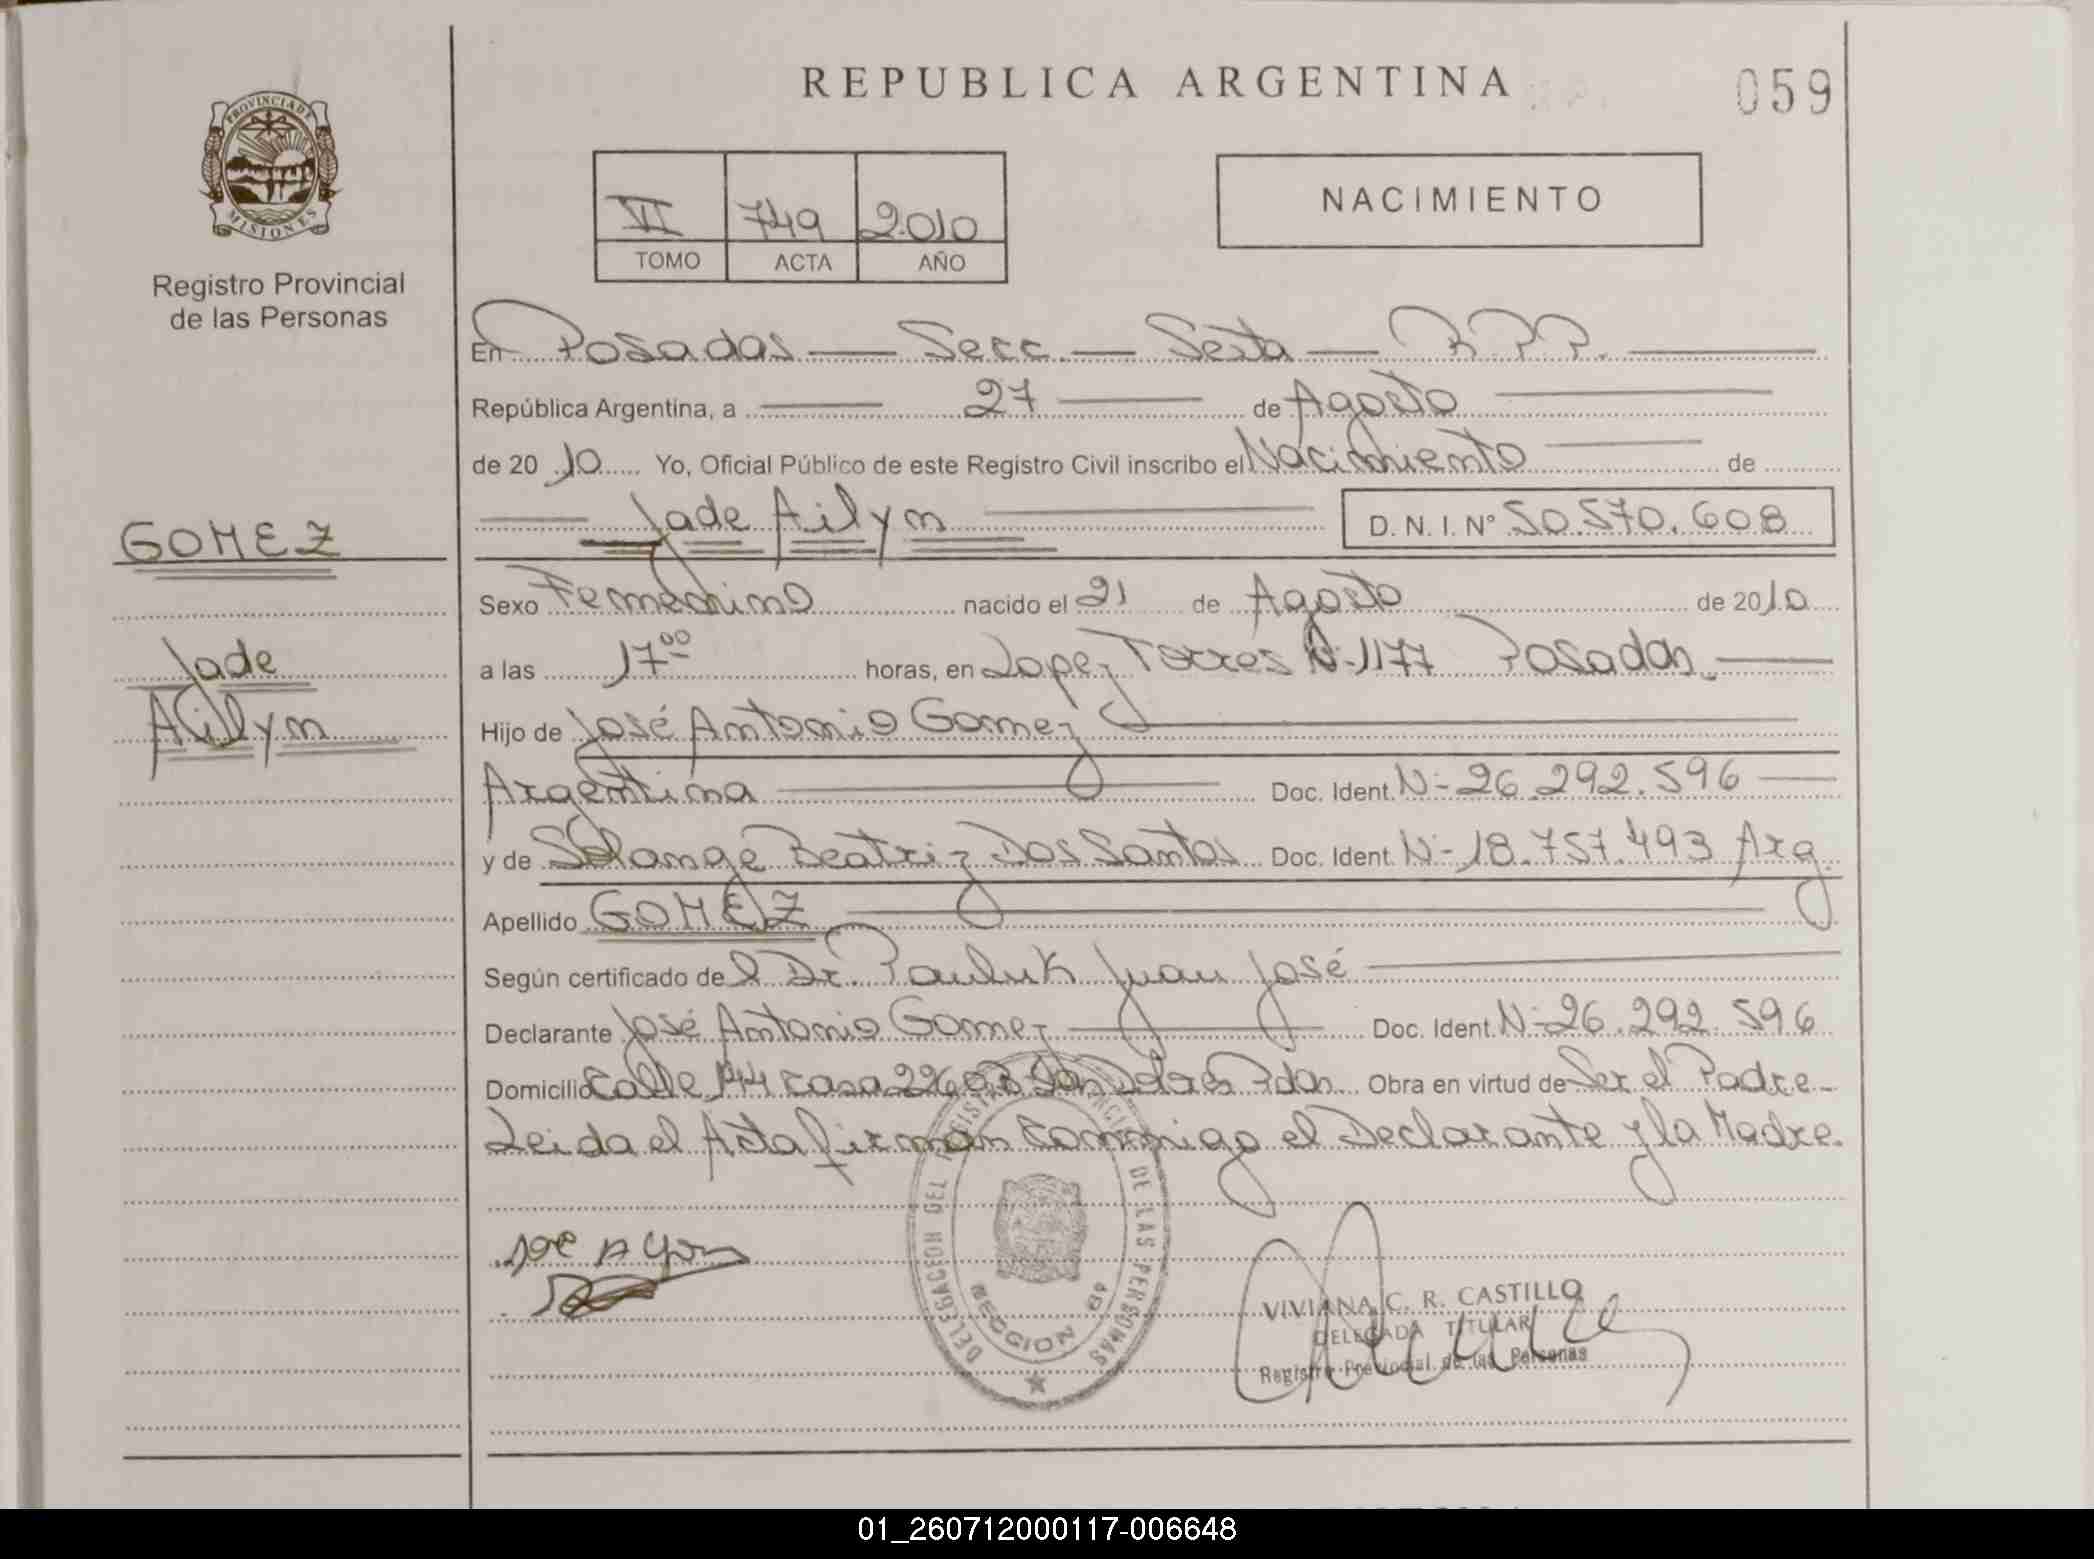 REPUBLICA ARGENTINA
059
PROVINCIA DE MISIONES
Registro Provincial
de las Personas
VI 749 2010
TOMO ACTA AÑO
NACIMIENTO
En Posadas — Secc — Sexta — R.P.P. —
República Argentina, a — 27 — de Agosto —
de 20 10 Yo, Oficial Público de este Registro Civil inscribo el Nacimiento — de
— Jade Ailyn — D. N. I. N° 50.570.608
GOMEZ
Jade
Ailyn
Sexo Femenino nacido el 21 de Agosto de 2010
a las 17 00 horas, en Lopez Torres N-1177 Posadas —
Hijo de José Antonio Gomez —
Argentina — Doc. Ident. N- 26.292.596 —
y de Solange Beatriz Dos Santos Doc. Ident. N- 18.757.493 Arg.
Apellido GOMEZ —
Según certificado de l Dr. Pauluk Juan José —
Declarante José Antonio Gomez — Doc. Ident. N- 26.292.596
Domicilio Calle 144 casa 226 Obra en virtud de Ser el Padre-
Leida el Acta firman conmigo el Declarante y la Madre.
DELEGACION DEL REGISTRO PROVINCIAL DE LAS PERSONAS
SECCION 6ª
VIVIANA C. R. CASTILLO
DELEGADA TITULAR
Registro Provincial de las Personas
01_260712000117-006648